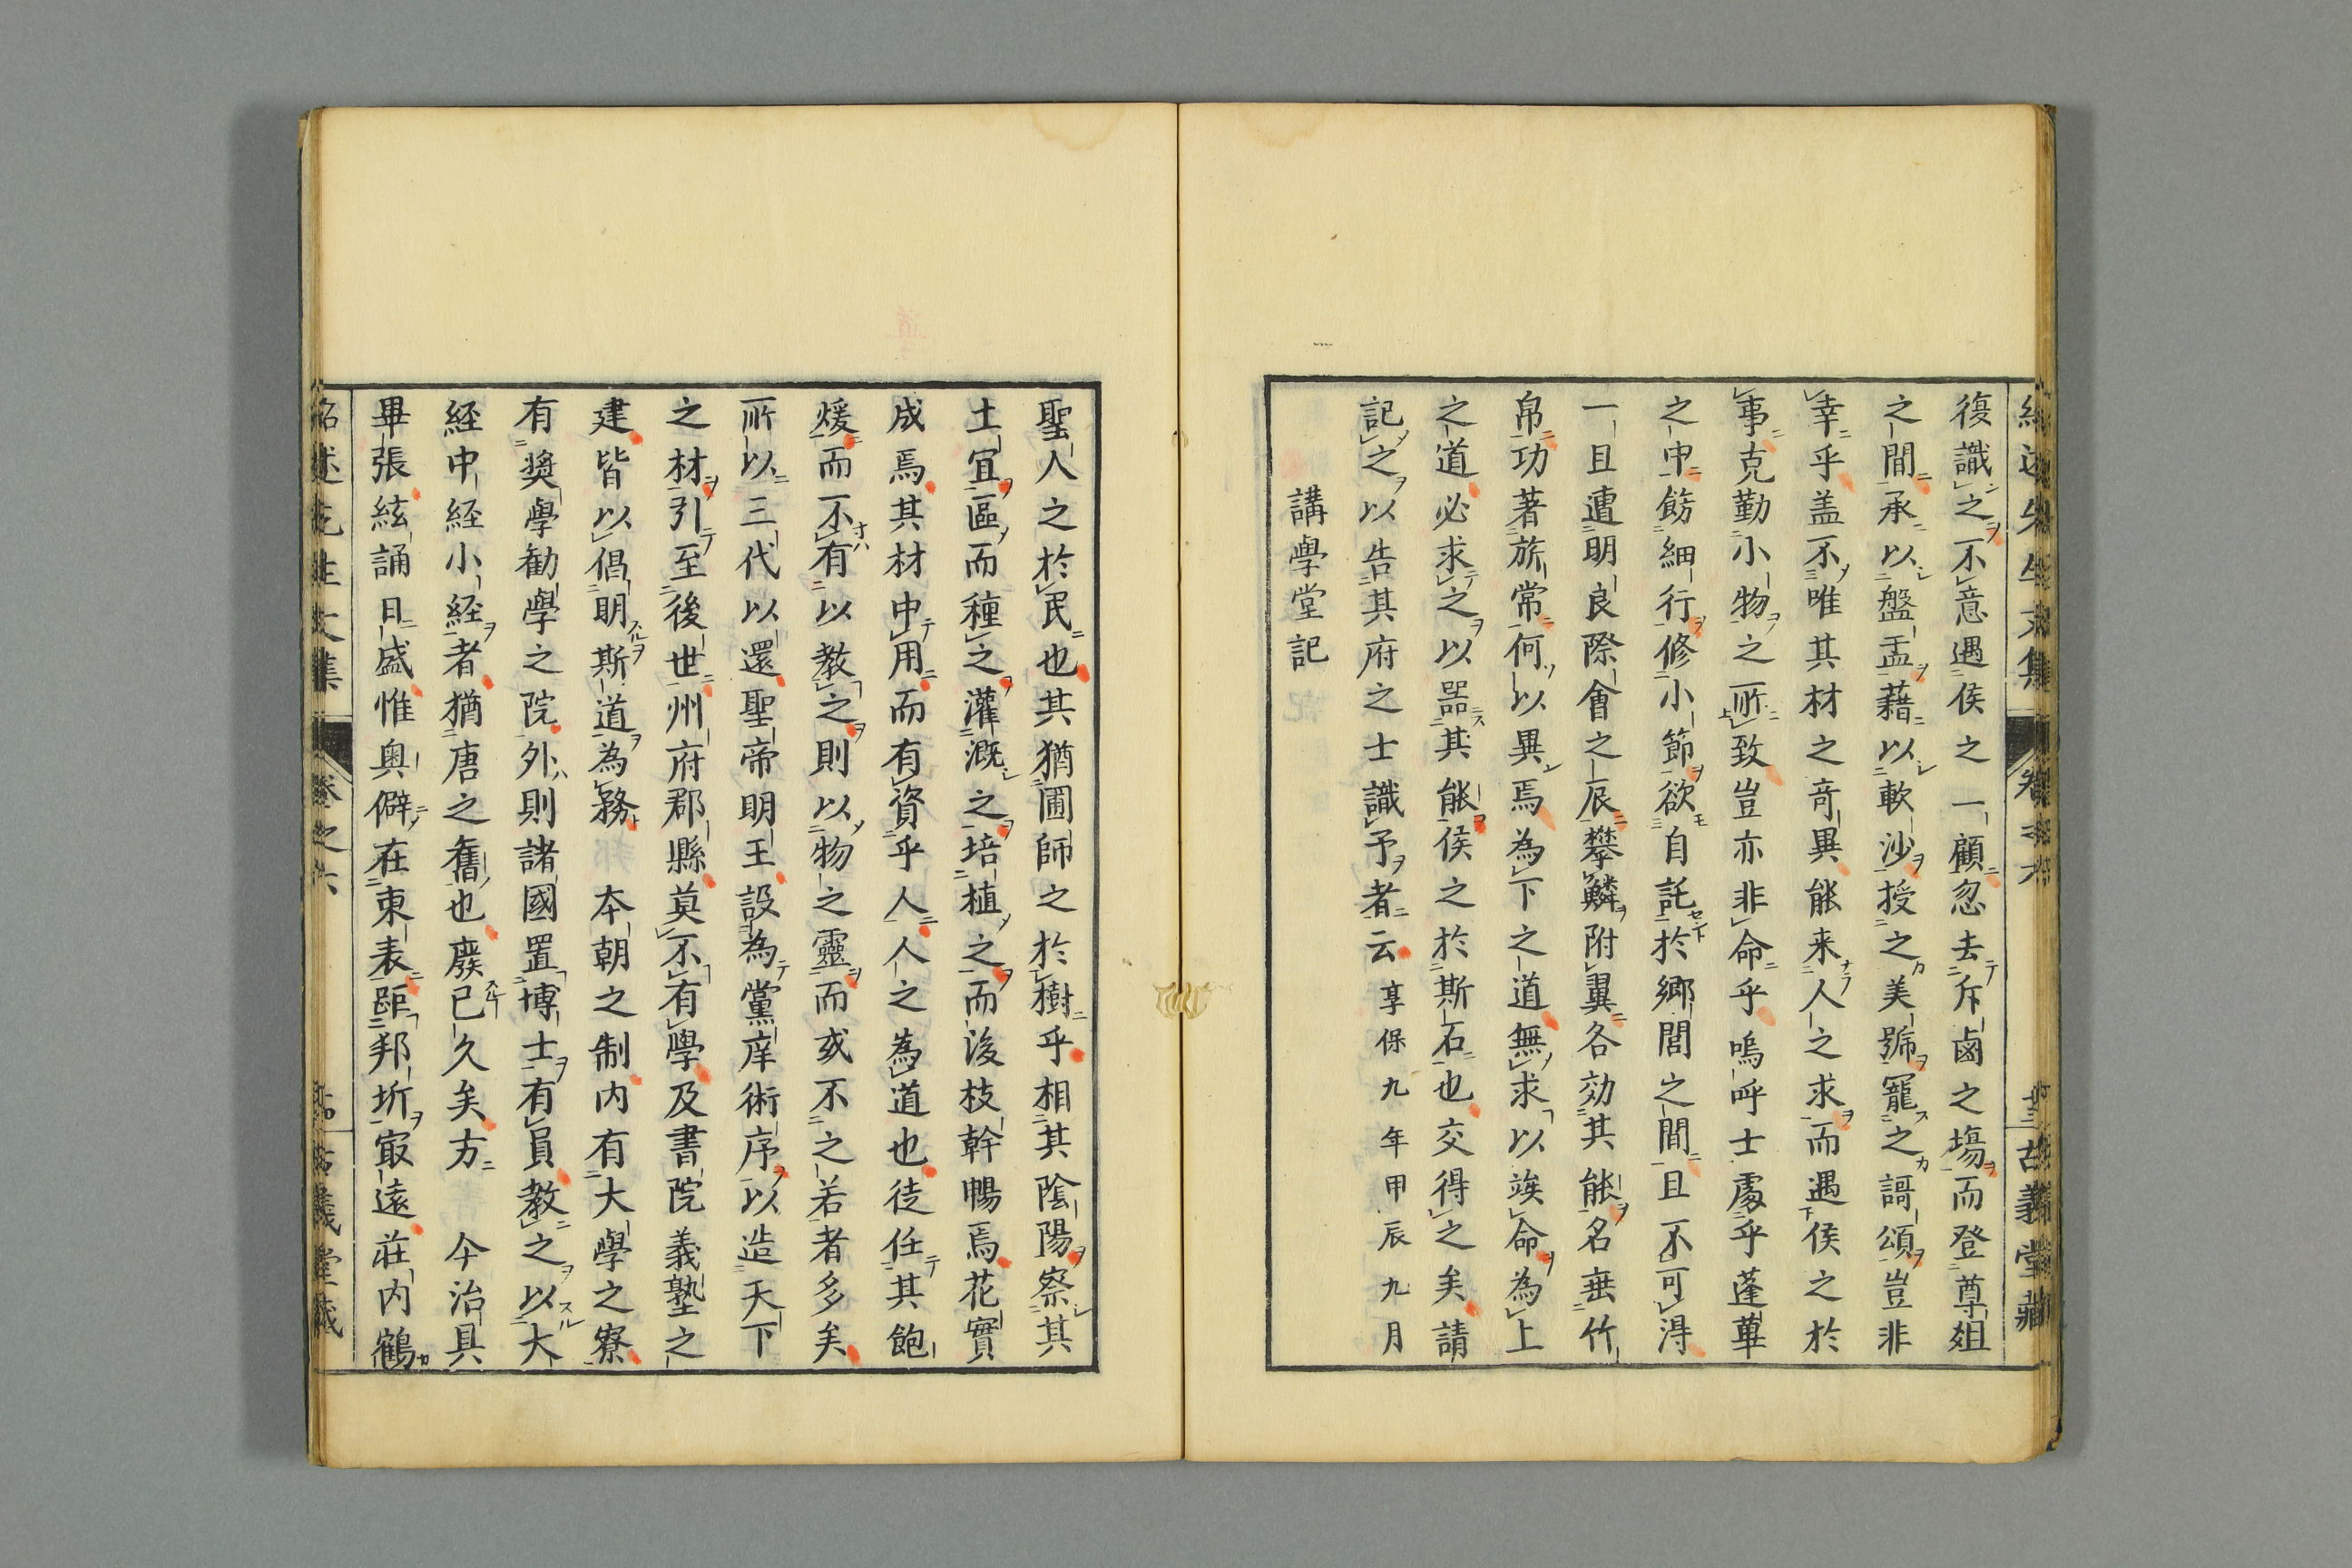 復識之不意遇侯之一顧忽去斥鹵之塲而登尊俎
之間承以盤盂藉以軟沙授之美號寵之謌頌豈非
幸乎盖不唯其材之竒異能来人之求而遇侯之於
事克勤小物之所致豈亦非命乎嗚呼士處乎蓬蓽
之中餝細行修小節欲自託於郷閭之間且不可淂
一旦遭明良際會之辰攀鱗附翼各効其能名垂竹
帛功著旂常何以異焉為下之道無求以竢命為上
之道必求之以器其能侯之於斯石也交得之矣請
記之以告其府之士識予者云享保九年甲辰九月
講學堂記
聖人之於民也其猶圃師之於樹乎相其陰陽察其
土宜區而種之灌漑之培植之而後枝幹暢焉花實
成焉其材中用而有資乎人人之為道也徒任其飽
煖而不有以教之則以物之靈而或不之若者多矣
所以三代以還聖帝明王設為黨庠術序以造天下
之材引至後世州府郡縣莫不有學及書院義塾之
建皆以倡明斯道為務本朝之制内有大學之寮
有奬學勸學之院外則諸國置博士有員教之以大
經中經小經者猶唐之舊也廢已久矣方今治具
畢張絃誦日盛惟奥僻在東表距邦圻寂遠莊内鶴
紹述先生文集 卷之六 古義堂藏